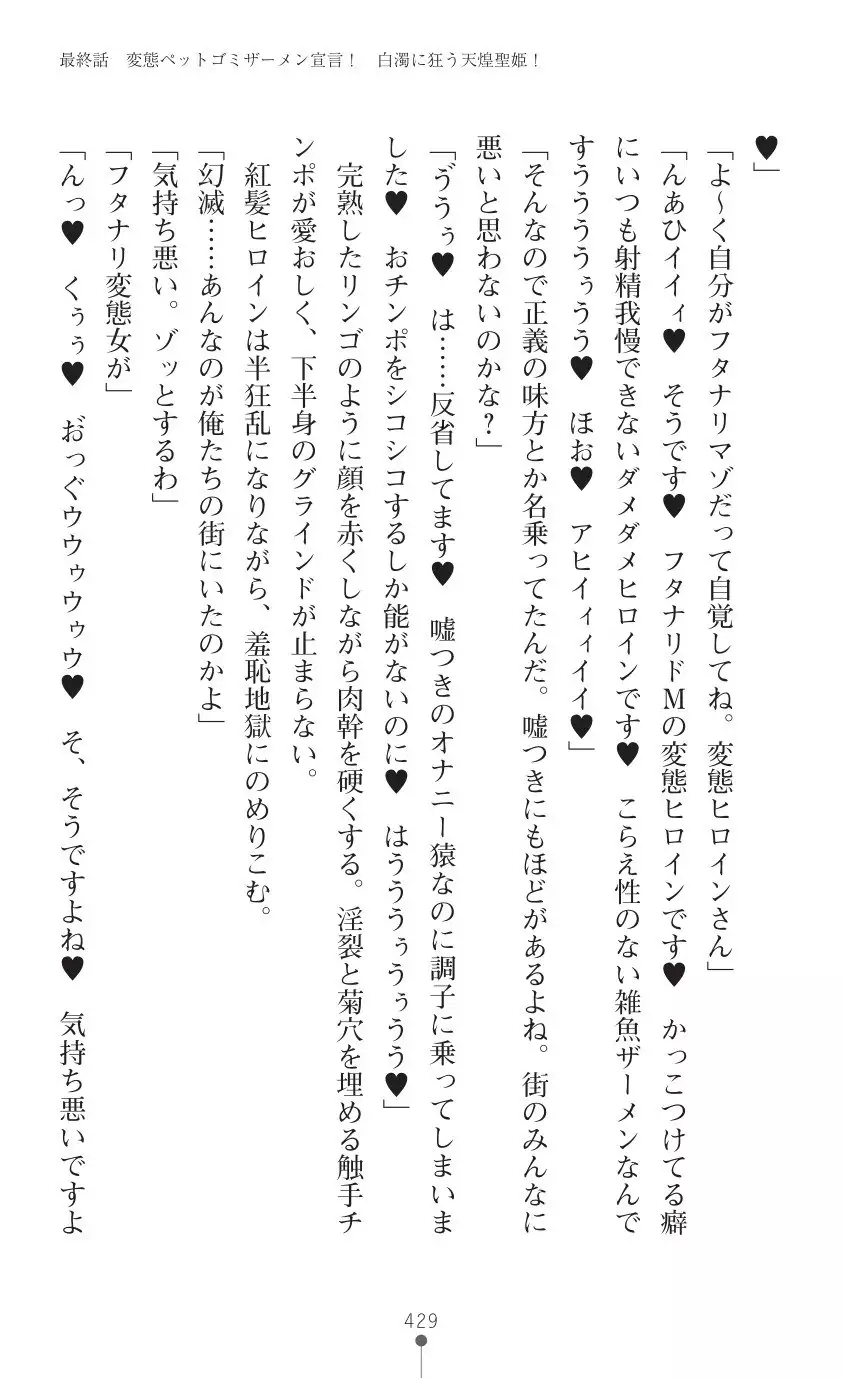 最終話　変態ペットゴミザーメン宣言！　白濁に狂う天煌聖姫！
♥」
「よ～く自分がフタナリマゾだって自覚してね。変態ヒロインさん」
「んぁひイイィ♥　そうです♥　フタナリドMの変態ヒロインです♥　かっこつけてる癖
にいつも射精我慢できないダメダメヒロインです♥　こらえ性のない雑魚ザーメンなんで
すうううぅうう♥　ほお♥　アヒイィィイイ♥」
「そんなので正義の味方とか名乗ってたんだ。嘘つきにもほどがあるよね。街のみんなに
悪いと思わないのかな？」
「ゔうぅ♥　は……反省してます♥　嘘つきのオナニー猿なのに調子に乗ってしまいま
した♥　おチンポをシコシコするしか能がないのに♥　はうううぅうぅうう♥」
　完熟したリンゴのように顔を赤くしながら肉幹を硬くする。淫裂と菊穴を埋める触手チ
ンポが愛おしく、下半身のグラインドが止まらない。
　紅髪ヒロインは半狂乱になりながら、羞恥地獄にのめりこむ。
「幻滅……あんなのが俺たちの街にいたのかよ」
「気持ち悪い。ゾッとするわ」
「フタナリ変態女が」
「んっ♥　くぅぅ♥　お゙っぐウウゥウゥウ♥　そ、そうですよね♥　気持ち悪いですよ
429